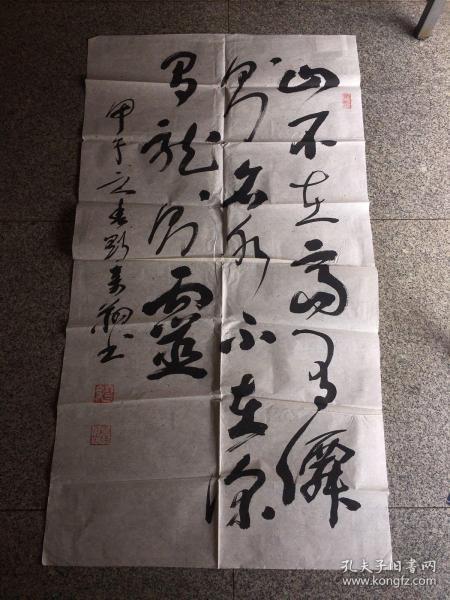 山不在高有僊
則名水不在深
有龍則靈
甲午春书
孔夫子旧书网
www.kongfz.com